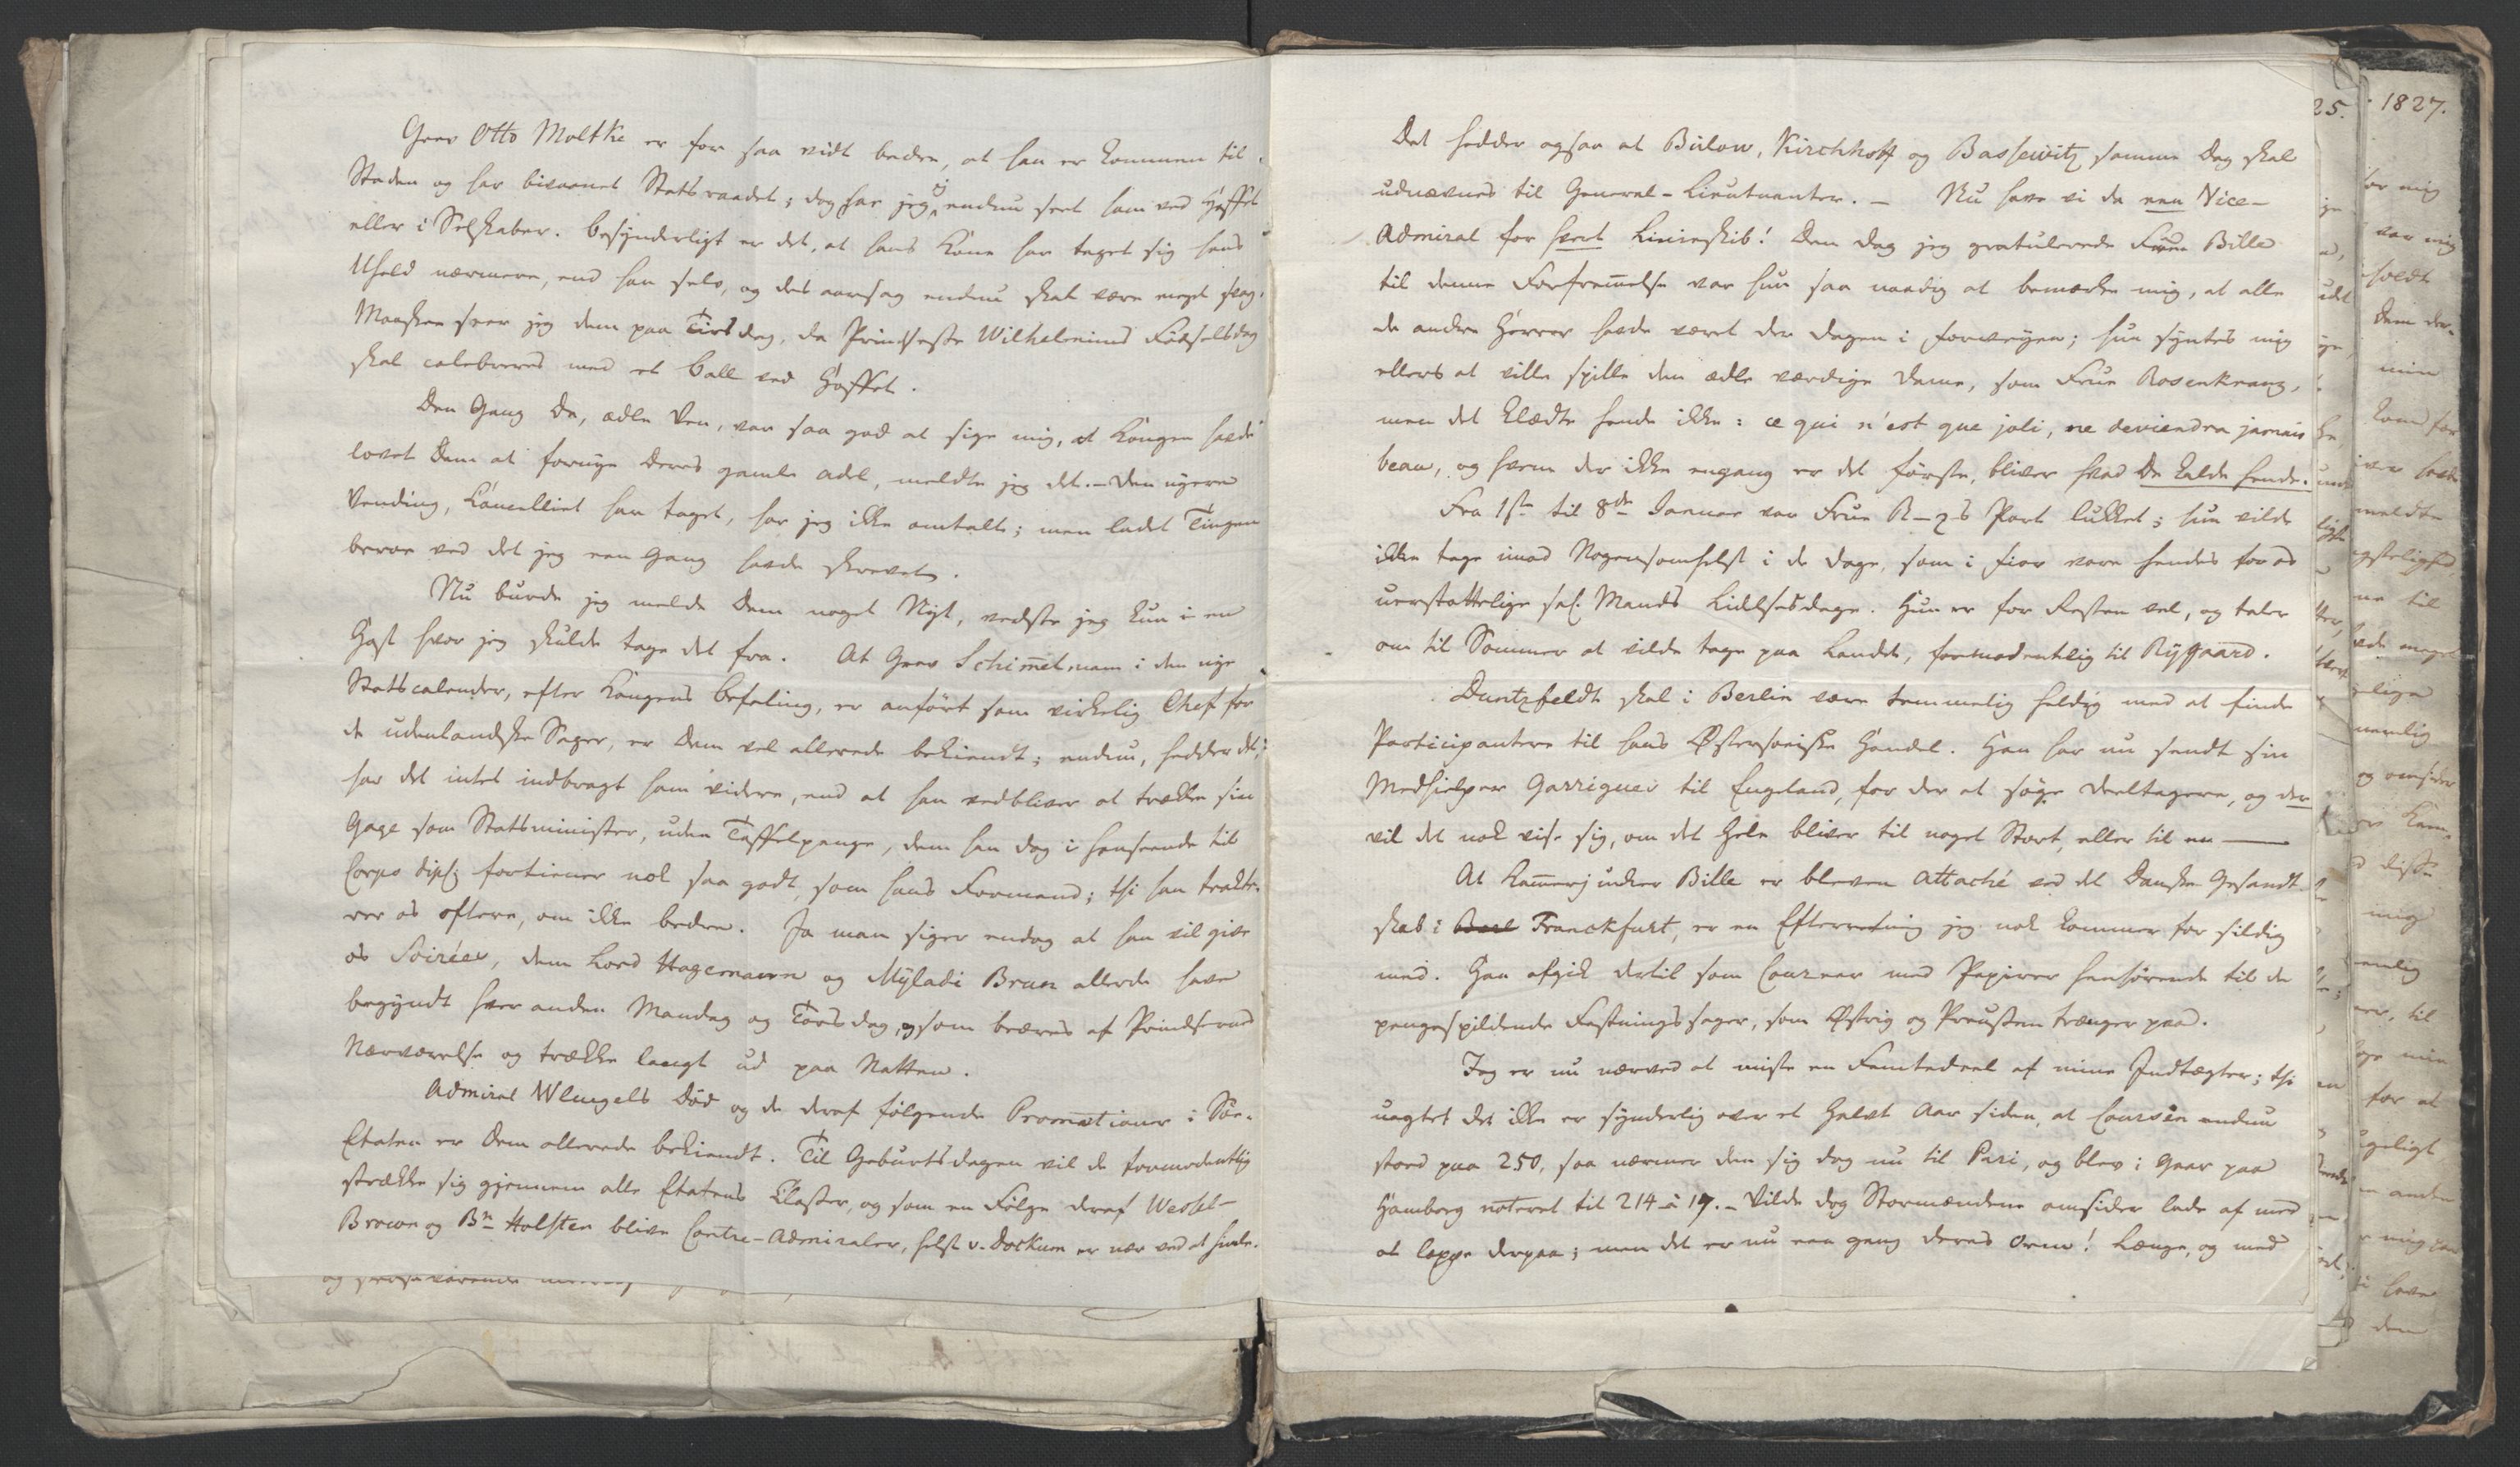 Grev Otto Moltke er for saa vidt bedre, at han er kommen til
Staden og har bivaanet Statsraadet; dog har jeg ej endnu seet ham ved Hoffet
eller i Selskaber. Besynderligt er det, at hans Kone har taget sig hans
Uheld nærmere, end han selv, og des aarsag endnu skal være meget svag.
Maaskee seer jeg dem paa Tirsdag, da Prindsesse Wilhelmines Födselsdag
skal celebreres med et Ball ved Hoffet.
Den Gang De, ædle Ven, var saa god at sige mig, at Kongen havde
lovet Dem at fornye Deres gamle Adel, meldte jeg det. - Den nyere
Vending, Cancelliet har taget, har jeg ikke omtalt; men ladet Tingen
beroe ved det jeg een Gang havde skrevet.
Nu burde jeg melde Dem noget Nyt, vedste jeg kun i en
Hast hvor jeg skulde tage det fra. At Grev Schimmelmann i den nye
Statscalender, efter Kongens Befaling, er anført som virkelig Chef for
de udenlandske Sager, er Dem vel allerede bekiendt; endnu, hedder det,
har det intet indbragt ham videre, end at han vedbliver at trække sin
Gage som Statsminister, uden Taffelpenge, dem han dog i Henseende til
Corps dipl: fortiener nok saa godt, som hans Formand; thi han trakte-
rer os oftere, om ikke bedre. Ja man siger endog at han vil give
os Soiréer, dem Lord Hagemann og Mÿladi Brun allerede have
begyndt hver anden Mandag og Torsdag, og som beæres af Prindsernes
Nærværelse og trække langt ud paa Natten.
Admiral Wleugels Död og de deraf følgende Promotioner i Söe-
Etaten er Dem allerede bekiendt. Til Geburtsdagen vil de formodentlig
strække sig gjennem alle Etatens Classer, og som en Følge deraf Wessel-
Brown og Bn Holsten blive Contre-Admiraler, helst v. Dockum er nær ved at
25.
1827.
Det hedder ogsaa at Bülow, Kirchhoff og Bassewitz samme Dag skal
udnævnes til General-Lieutnanter. - Nu have vi da een Vice-
Admiral for hvert Linieskib! Den Dag jeg gratulerede Frue Bille
til denne Forfremmelse var hun saa naadig at bemærke mig, at alle
de andre Herrer havde været der Dagen i Forveyen; hun syntes mig
ellers at ville spille den ædle værdige Dame, som Frue Rosenkranz,
men det klædte hende ikke: ce qui n'est que joli, ne deviendra jamais
beau, og hvem der ikke engang er det første, bliver hvad De kalde hende.
Fra 1ste til 8de Januar var Frue R-z's Port lukket; hun vilde
ikke tage imod Nogensomhelst i de Dage, som i Fior vare hendes for os
uerstattelige sal. Mands Lidelsesdage. Hun er for Resten vel, og taler
om til Sommer at vilde tage paa Landet, formodentlig til Rÿgaard.
Duntzfeldt skal i Berlin være temmelig heldig med at finde
Participantere til hans Østersøiske Handel. Han har nu sendt sin
Medhielper Garrigues til Engeland, for der at søge Deeltagere, og der
vil det nok vise sig, om det Hele bliver til noget Stort, eller til en ——
At Kammerjunker Bille er bleven Attaché ved det Danske Gesandt-
skab i Franckfurt, er en Efterretning jeg nok kommer for sildig
med. Han afgik dertil som Coureer med Papirer henhørende til de
pengespildende Fæstningssager, som Østrig og Preussen trænger paa.
Jeg er nu nærved at miste en Femtedeel af mine Indtægter; thi
uagtet det ikke er synderlig over et Halvt Aar siden, at Coursen endnu
stoed paa 250, saa nærmer den sig dog nu til Pari, og blev i Gaar paa
Hamborg noteret til 214 à 17. - Vilde dog Stormændene omsider lade af med
at lappe derpaa; men det er nu een gang deres Orm! Længe, og med